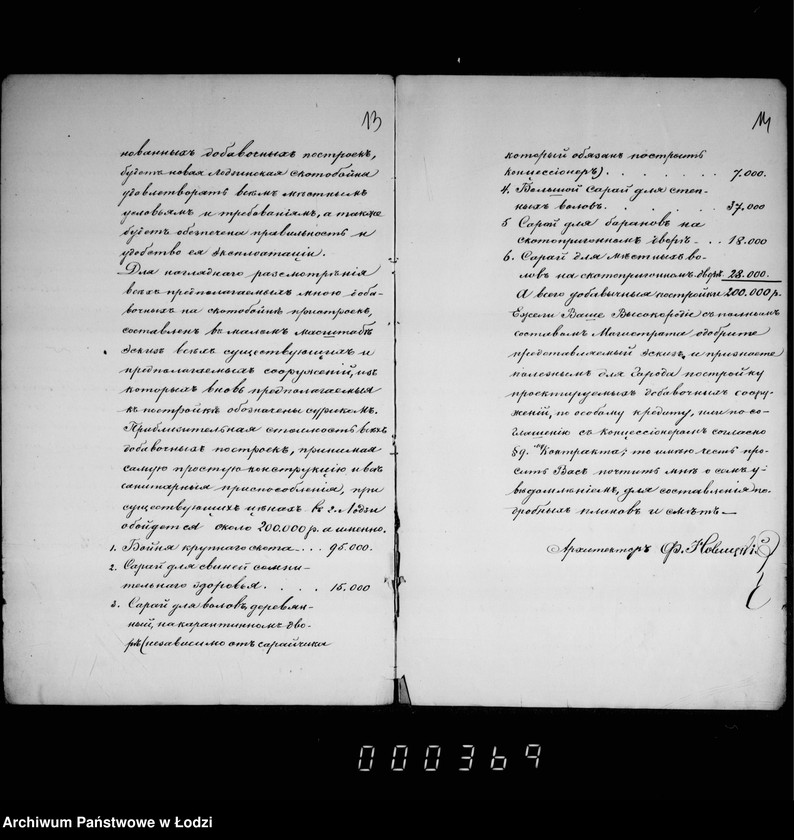 13
нованныхъ добавочныхъ построекъ,
будетъ новая Лодзинская скотобойня
удовлетворять всѣмъ мѣстнымъ
условьямъ и требованіямъ, а также
будетъ обезпечена правильность и
удобство ея эксплоатаціи.
Для нагляднаго разсмотрѣнія
всѣхъ предполагаемыхъ мною доба-
вочныхъ на скотобойнѣ пристроекъ,
составленъ въ маломъ масштабѣ
эскизъ всѣхъ существующихъ и
предполагаемыхъ сооруженій, изъ
которыхъ вновь предполагаемыя
къ постройкѣ обозначены сурикомъ.
Приблизительная стоимость всѣхъ
добавочныхъ построекъ, принимая
самую простую конструкцію и всѣ
санитарныя приспособленія, при
существующихъ цѣнахъ въ г. Лодзи
обойдется около 200.000 р. а именно.
1. Бойня крупнаго скота . . . 95.000.
2. Сарай для свиней сомни-
тельнаго здоровья . . . . 15.000
3. Сарай для воловъ, деревян-
ный, на карантинномъ дво-
рѣ (независимо отъ сарайчика
14
который обязанъ построить
концессіонеръ) . . . . . 7.000.
4. Большой Сарай для степ-
ныхъ воловъ . . . . . 37.000
5 Сарай для барановъ на
скотопригонномъ дворѣ . . . 18.000
6. Сарай для мѣстныхъ во-
ловъ на скотопригонномъ дворѣ 28.000.
А всего добавочныя постройки 200.000 р.
Ежели Ваше Высокородіе съ полнымъ
составомъ Магистрата одобрите
представляемый эскизъ и признаете
полезнымъ для Города постройку
проектируемыхъ добавочныхъ соору-
женій, по особому кредиту, или по со-
глашенію съ концессіонеромъ согласно
§ 9. Контракта; то имѣю честь про-
сить Васъ почтить мнѣ о семъ у-
вѣдомленіемъ, для составленія по-
дробныхъ плановъ и смѣтъ. —
Архитекторъ Ф.
000369
Archiwum Państwowe w Łodzi